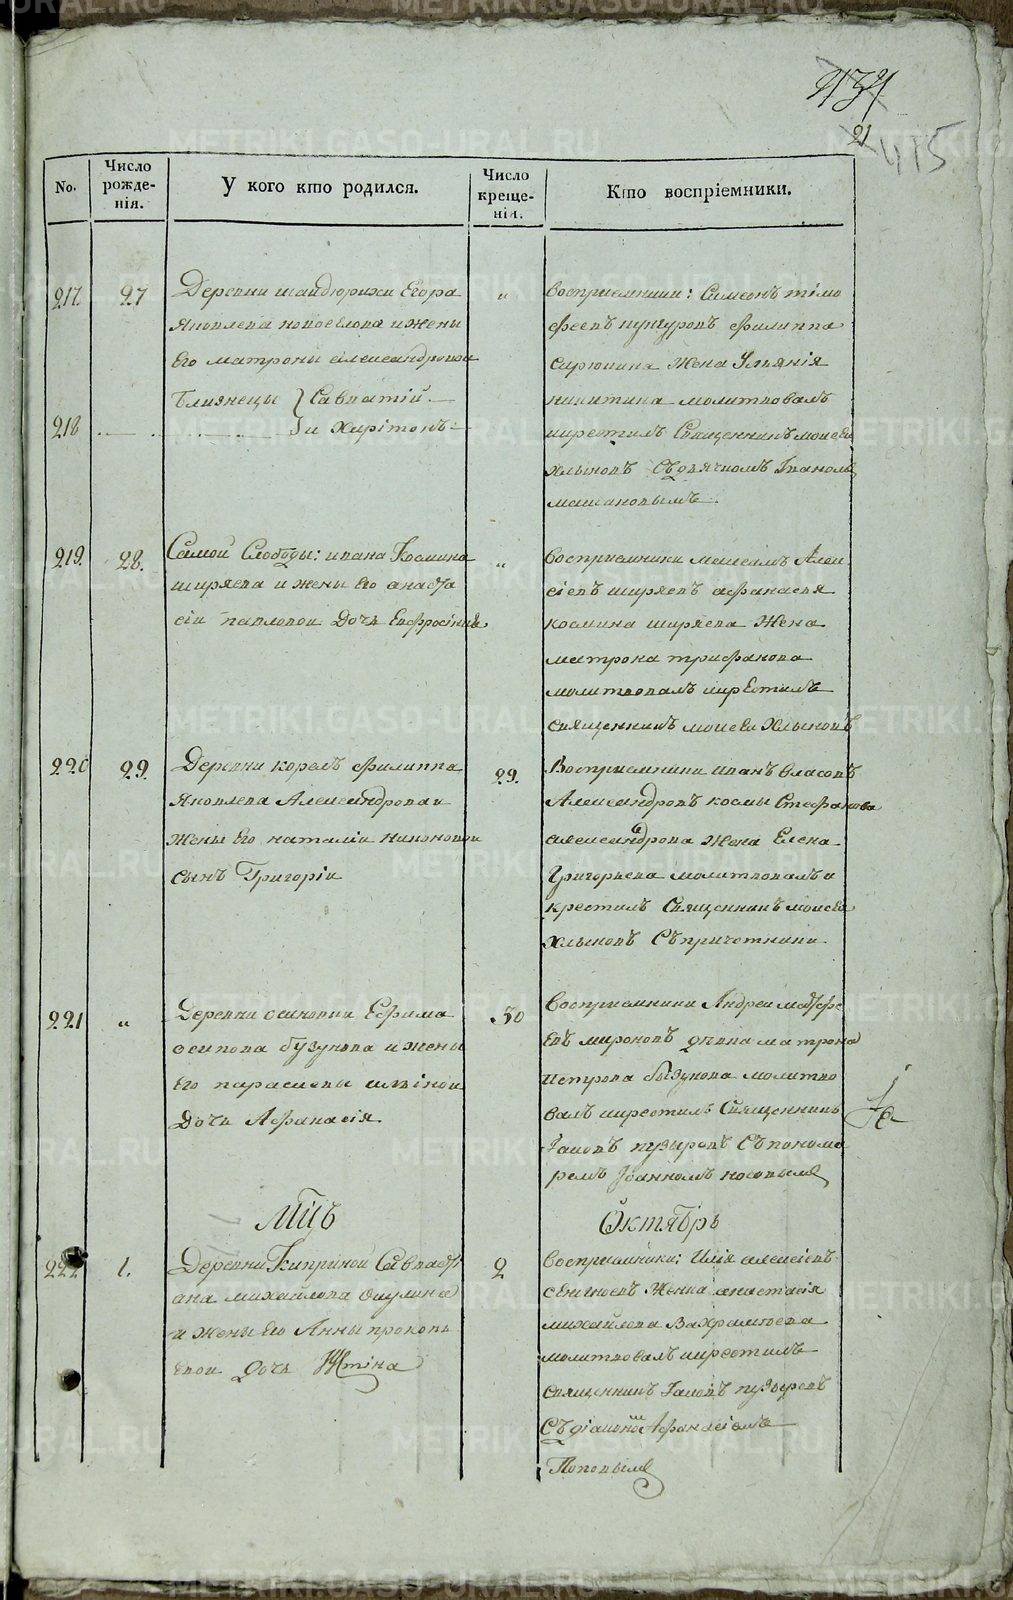 21
415
No.
Число рожденія.
У кого кто родился.
Число крещенія.
Кто воспріемники.
217
27
Деревни шайдюрихи Егора
Яковлева новоселова и жены
Его матроны александровой
Близнецы } Савватій
218
и Харітонъ
„
Восприемники: Симеонъ тімо
феевъ Филиппа
жена Улянія
никитина молитвовалъ
и крестилъ Священникъ моисей
Хлыновъ Съ дьячкомъ Іваномъ
219
28.
Самой Слободы: ивана Космина
ширяева и жены Его анаста
сіи павловой Дочь Евфросінія
„
Восприемники Алек
сіевъ ширяевъ афанасья
космина ширяева Жена
матрона трифанова
молитвовалъ и крЕстилъ
священникъ моисей Хлыновъ
220
29.
Деревни корелъ филиппа
Яковлева Александрова и
жены Его наталіи никоновой
сынъ Григоріи
29.
Восприемники иванъ власовъ
Александровъ космы Стефанова
александрова жена Елена
Григорьева молитвовалъ и
крестилъ Священникъ моисей
Хлыновъ Съ причетники
221
„
Деревни осиновки Ефима
осипова бузунова и жены
Его парасковьи
Дочь Афанасія
30
Восприемники Андреи матфе
Евъ мироновъ дѣвка матрона
петрова бызунова молитво
валъ и крестилъ Священникъ
Іаковъ пузыревъ Съ понома
ремъ Іоанномъ носовымъ
Мцъ
Октябрь
222
1.
Деревни Киприной Савваст
яна михайлова окулина
и жены Его Анны прокопь
евой дочь Устіна
2
Восприемники: Илія алексіевъ
Женка анастасія
михайлова Вахрамѣева
молитвовалъ и крестилъ
священникъ Іаковъ пузыревъ
Съ діакономъ Афанасіемъ
Поповымъ
METRIKI.GASO-URAL.RU